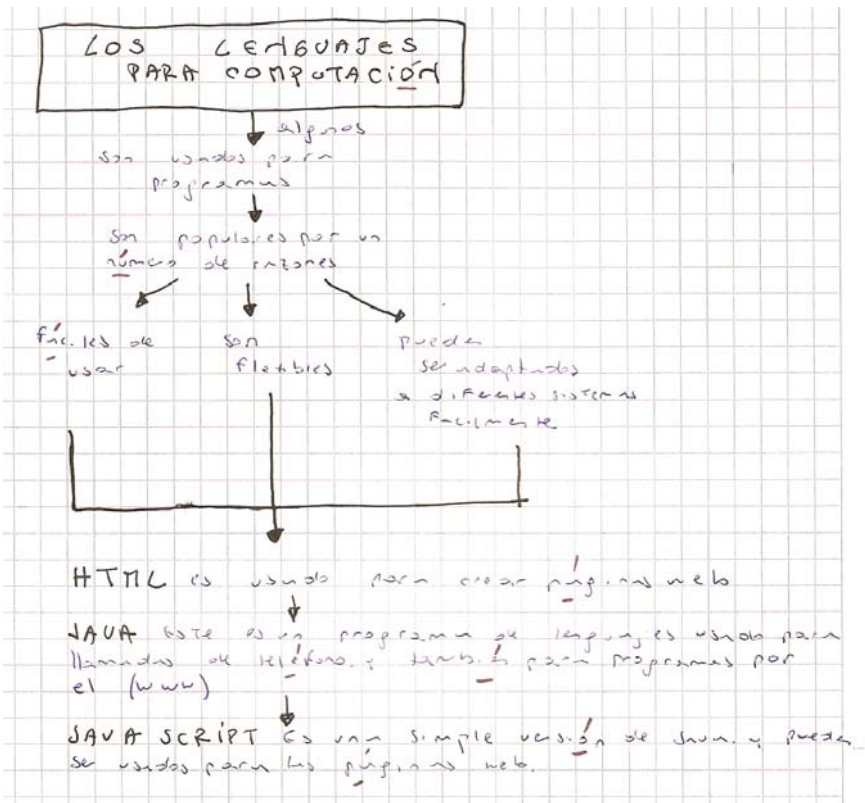 LOS LENGUAJES
PARA COMPUTACIÓN
algunos
son usados para
programas
son populares por un
número de razones
fáciles de
usar
son
flexibles
pueden
ser adaptados
a diferentes sistemas
facilmente
HTML es usado para crear páginas web
JAVA Este es un programa de lenguajes usado para
llamadas de teléfono. y también para programas por
el (www)
JAVA SCRIPT Es una simple versión de Java. y pueden
ser usados para las páginas web.